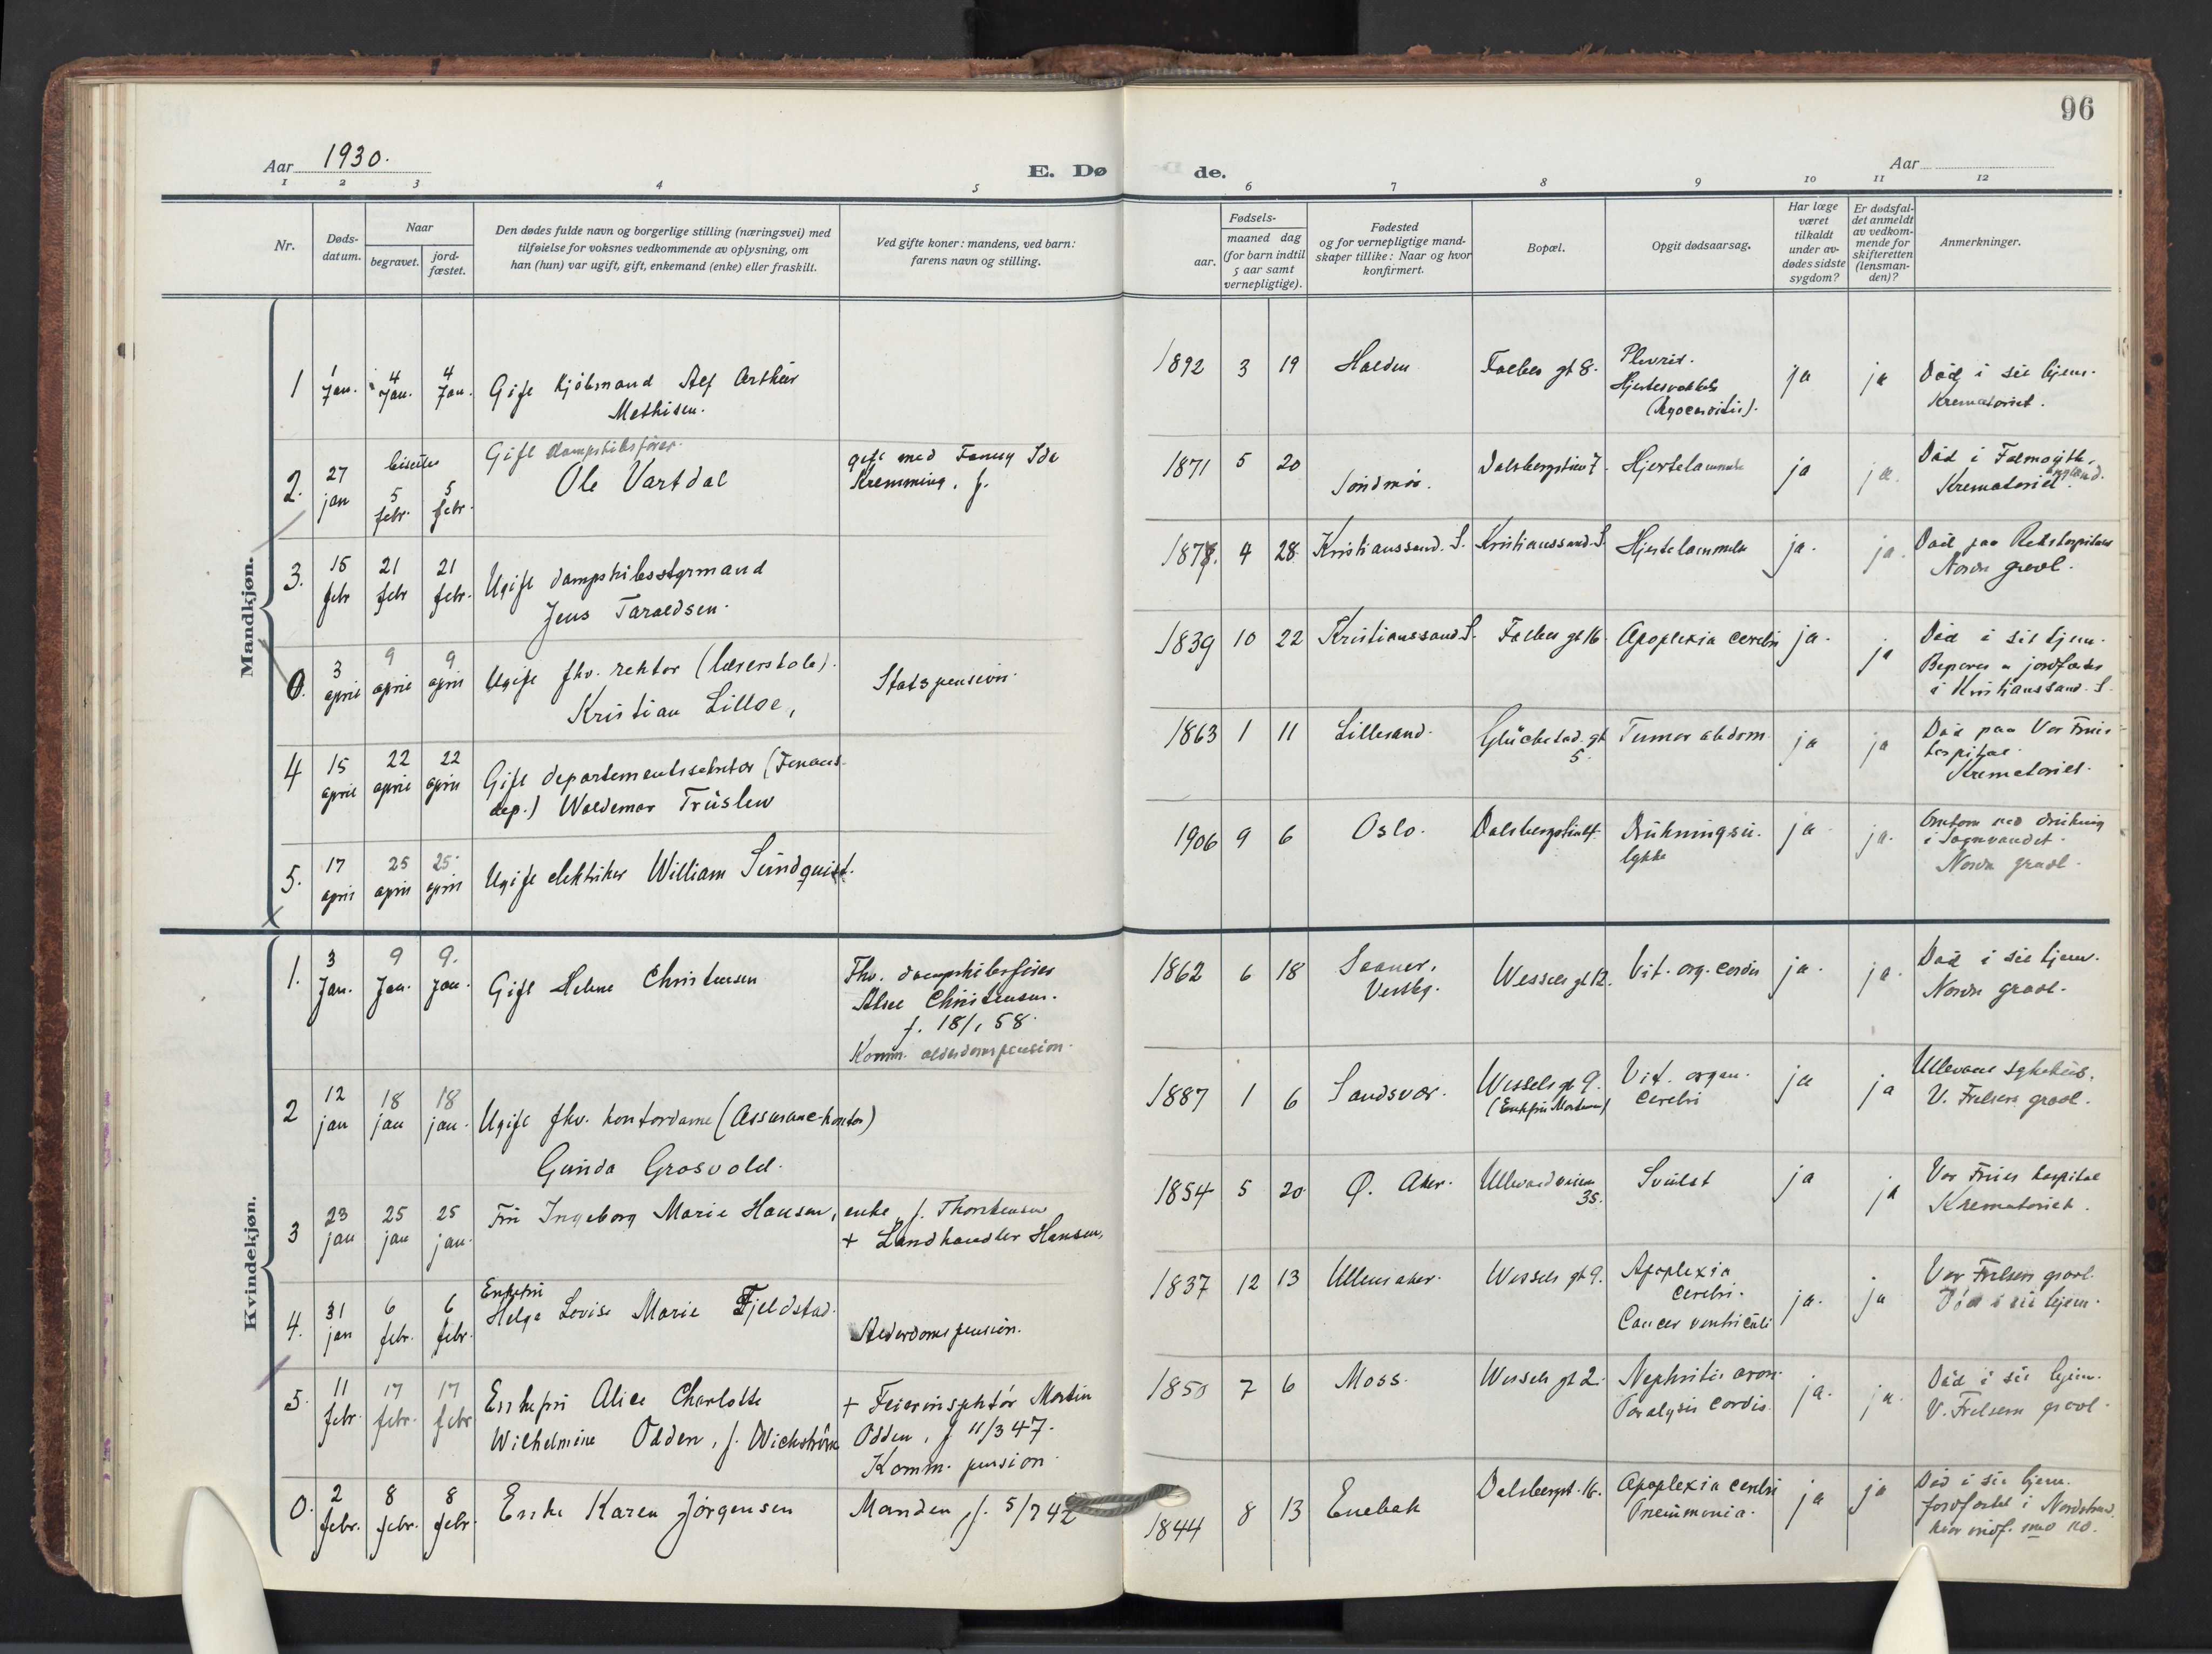 96
Aar 1930.
E. Dø
de.
Aar
1 2 3 4 5 6 7 8 9 10 11 12
Nr.
Døds-
datum.
Naar
begravet.
jord-
fæstet.
Den dødes fulde navn og borgerlige stilling (næringsvei) med
tilføielse for voksnes vedkommende av oplysning, om
han (hun) var ugift, gift, enkemand (enke) eller fraskilt.
Ved gifte koner: mandens, ved barn:
farens navn og stilling.
Fødsels-
aar.
maaned dag
(for barn indtil
5 aar samt
vernepligtige).
Fødested
og for vernepligtige mand-
skaper tillike: Naar og hvor
konfirmert.
Bopæl.
Opgit dødsaarsag.
Har læge
været
tilkaldt
under av-
dødes sidste
sygdom?
Er dødsfal-
det anmeldt
av vedkom-
mende for
skifteretten
(lensman-
den)?
Anmerkninger.
Mandkjøn.
1
1 Jan.
4 Jan.
4 Jan.
Gift Kjøbmand Alf Arthur
Mathisen.
1892 3 19
Halden
Falbes gt 8.
Plevrit.
ja
ja
Død i sit hjem.
Krematoriet.
2.
27 jan
bisettes
5 febr.
5 febr.
Gift dampskibsfører
Ole Vartdal
gift med Fanny Ida
Kremming, f.
1871 5 20
Søndmør.
Dalsbergstien 7.
Hjertelammelse
ja
ja.
Død i Falmouth,
England.
Krematoriet
3.
15 febr
21 febr
21 febr.
Ugift dampskibsstyrmand
Jens Taraldsen.
4 28
Kristianssand. S.
Kristianssand. S.
Hjertelammelse
ja.
ja.
Død paa Rikshospitalet
Nordre gravl.
0.
3 april
9 april
9 april
Ugift fhv. rektor (lærerskole).
Kristian Lilloe,
Statspension.
1839 10 22
Kristianssand S.
Falbes gt 16.
Apoplexia cerebri
ja.
ja
Død i sit hjem.
i Kristianssand. S.
4
15 april
22 april
22 april
Gift departementssekretær (Finans-
dep.) Waldemar Truslew
1863 1 11
Lillesand.
Glückstad. gt
5.
Tumor abdom.
ja
ja
Død paa Vor Frues
hospital.
Krematoriet.
5.
17 april
25 april
25 april
Ugift elektriker William Sundquist.
1906 9 6
Oslo.
Drukningsu-
lykke
ja
ja.
Omkom ved drukning
i Sognsvandet.
Nordre gravl.
Kvindekjøn.
1.
3 Jan.
9 Jan.
9. Jan.
Gift Helene Christensen
Fhv. dampskibsfører
Christensen.
f. 18/1 58.
Komm. alderdomspension.
1862 6 18
Saaner,
Vestby.
Wessels gt 12.
Vit. org. cordis
ja.
ja.
Død i sit hjem.
Nordre gravl.
2
12 jan
18 jan
18 jan.
Ugift fhv. kontordame (Assurancekontor)
Gunda Grosvold.
1887 1 6
Sandsvær.
Wessels gt 9.
Vit. organ.
cerebri
ja
ja
Ullevaal sykehus.
V. Frelsers gravl.
3
23 jan
25 jan
25 jan.
Fru Ingeborg Marie Hansen, enke, f. Thorstensen
+ Landhandler Hansen.
1854 5 20
Ø. Aker.
Ullevaalsveien
35.
Svulst
ja
ja
Vor Frues hospital
Krematoriet.
4.
31 jan
6 febr.
6 febr.
Enkefru
Helga Lovise Marie Fjeldstad.
Alderdomspension.
1837 12 13
Ullensaker.
Wessels gt 9.
Apoplexia
cerebri.
Cancer ventriculi
ja.
ja
Vor Frelsers gravl.
Død i sit hjem.
5.
11 febr.
17 febr.
17 febr
Enkefru Alice Charlotte
Wilhelmine Odden, f. Wickstrøm
+ Feierinspektør Martin
Odden, f. 11/3 47.
Komm. pension.
7 6
Moss.
Wessels gt 2.
Nephritis cron.
Paralysis cordis.
ja.
ja.
Død i sit hjem.
V. Frelsers gravl.
0.
2 febr.
8 febr.
8 febr.
Enke Karen Jørgensen
Manden, f. 5/7 42
1844 8 13
Enebak
Dalsbergst. 16.
Apoplexia cerebri
Pneumonia.
ja
ja
Død i sit hjem.
Jordfæstet i Nordstrand